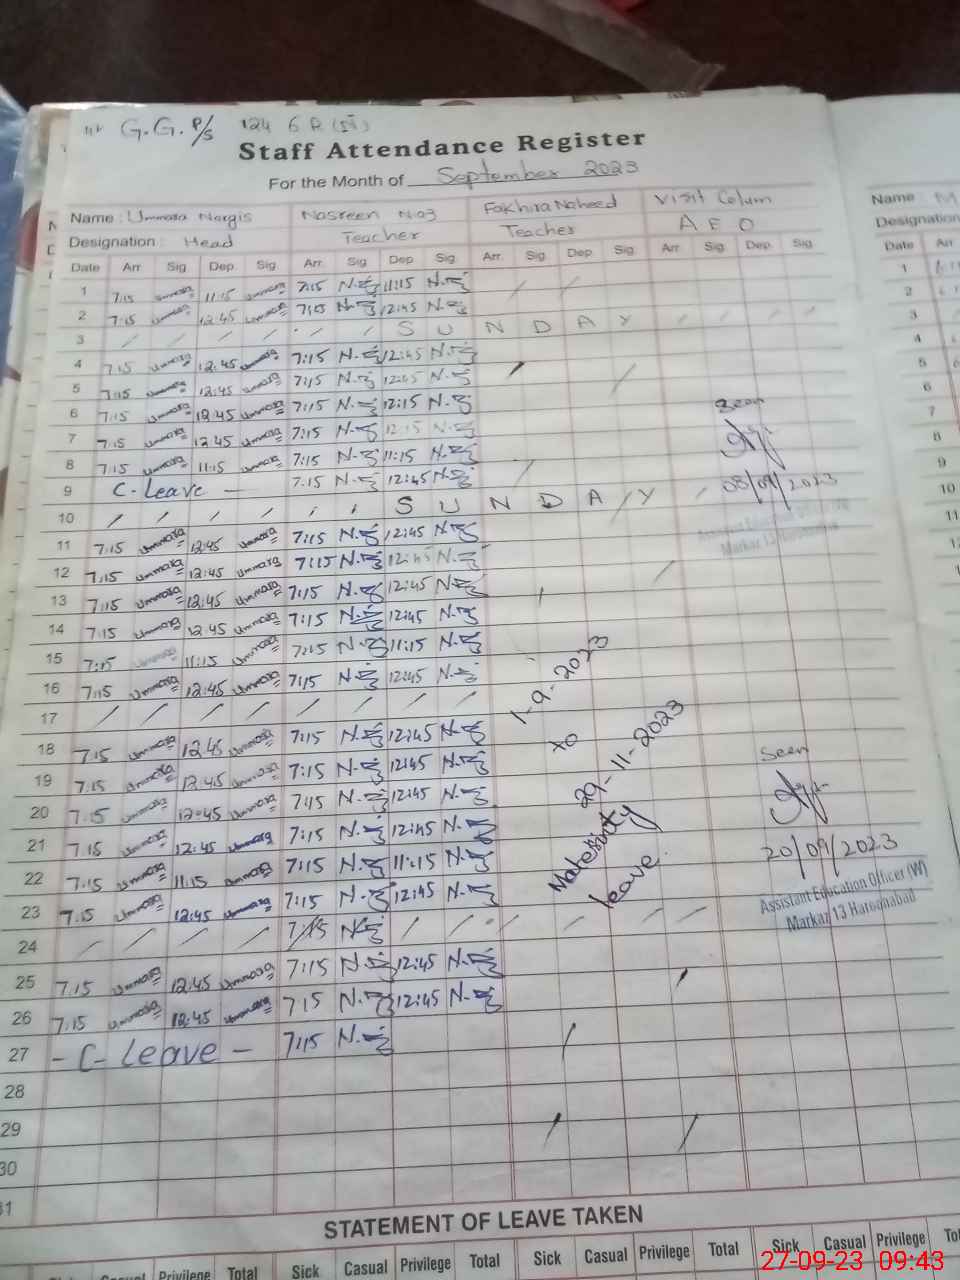 G.G. P/S 124 6 R (N)
Staff Attendance Register
For the Month of September 2023
Name : Ummara Nargis Nasreen Niaz Fakhira Naheed Visit Colum
Designation : Head Teacher Teacher A E O
Date Arr Sig Dep Sig Arr. Sig Dep Sig Arr. Sig. Dep. Sig. Arr. Sig. Dep. Sig
1 7:15 Ummara 11:15 Ummara 7:15 11:15
2 7:15 Ummara 12:45 Ummara 7:15 12:45
3 S U N D A Y
4 7:15 Ummara 12:45 Ummara 7:15 12:45
5 7:15 Ummara 12:45 Ummara 7:15 12:45
6 7:15 Ummara 12:45 Ummara 7:15 12:15
7 7:15 Ummara 12:45 Ummara 7:15 12:15
8 7:15 Ummara 11:15 Ummara 7:15 11:15
9 C-Leave - 7:15 12:45
10 S U N D A Y
11 7:15 Ummara 12:45 Ummara 7:15 12:45
12 7:15 Ummara 12:45 Ummara 7:15 12:45
13 7:15 Ummara 12:45 Ummara 7:15 12:45
14 7:15 Ummara 12:45 Ummara 7:15 12:45
15 7:15 Ummara 11:15 Ummara 7:15 11:15
16 7:15 Ummara 12:45 Ummara 7:15 12:45
17
18 7:15 Ummara 12:45 Ummara 7:15 12:45
19 7:15 Ummara 12:45 Ummara 7:15 12:45
20 7:15 Ummara 12:45 Ummara 7:15 12:45
21 7:15 Ummara 12:45 Ummara 7:15 12:45
22 7:15 Ummara 11:15 Ummara 7:15 11:15
23 7:15 Ummara 12:45 Ummara 7:15 12:45
24 7:15
25 7:15 Ummara 12:45 Ummara 7:15 12:45
26 7:15 Ummara 12:45 Ummara 7:15 12:45
27 - C- Leave - 7:15
28
29
30
31
1-9-2023
to
29-11-2023
leave.
Seen
08/09/2023
Markaz 13 Haroonabad
Seen
20/09/2023
Assistant Education Officer (W)
Markaz 13 Haroonabad
STATEMENT OF LEAVE TAKEN
Casual Privilege Total Sick Casual Privilege Total Sick Casual Privilege Total Sick Casual Privilege
Name
Designation
Date Arr
1
2
3
4
5
6
7
8
9
10
11
27-09-23 09:43